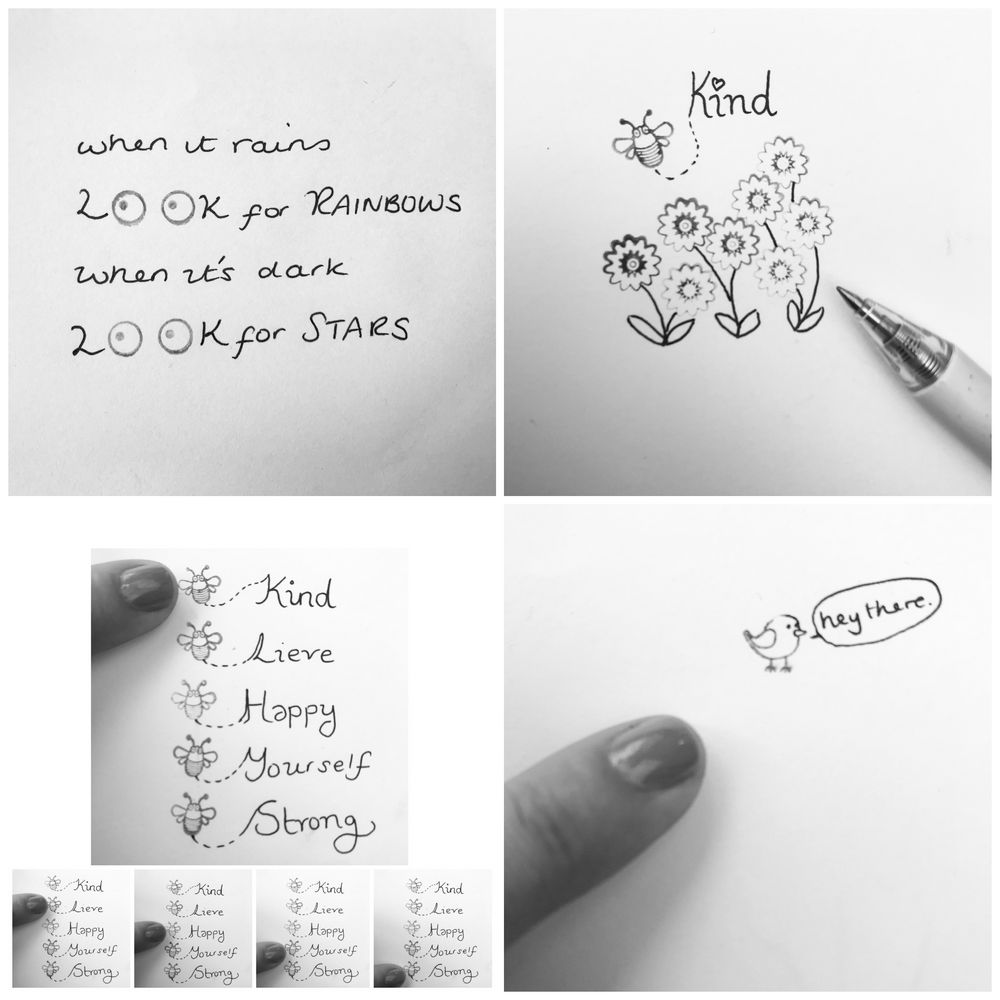 when it rains
LOOK for RAINBOWS
when it's dark
LOOK for STARS
Kind
Kind
Lieve
Happy
Yourself
Strong
hey there.
Kind
Lieve
Happy
Yourself
Strong
Kind
Lieve
Happy
Yourself
Strong
Kind
Lieve
Happy
Yourself
Strong
Kind
Lieve
Happy
Yourself
Strong